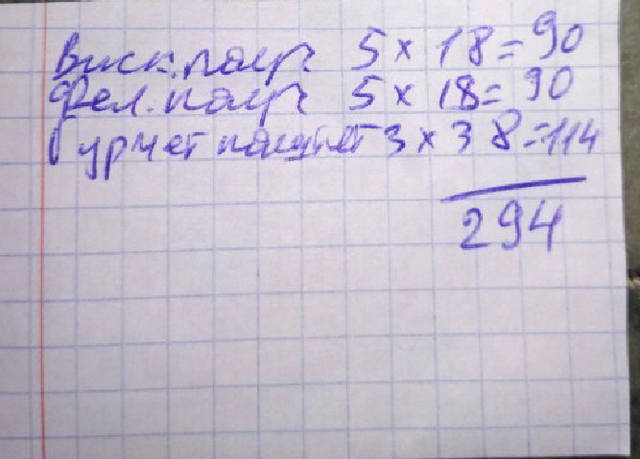 Виск. пауч 5 × 18 = 90
Фел. пауч 5 × 18 = 90
Гурмет паштет 3 × 38 = 114
294